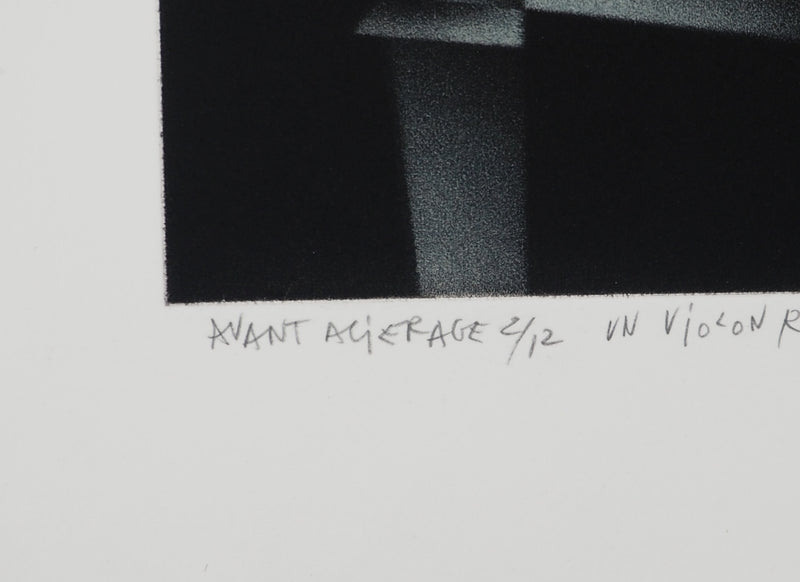 AVANT ACIERAGE 2/12 UN VIOLON R